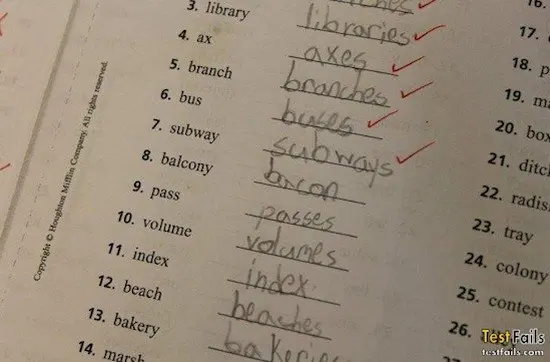 3. library libraries
4. ax axes
5. branch branches
6. bus buses
7. subway subways
8. balcony bacon
9. pass passes
10. volume volumes
11. index index
12. beach beaches
13. bakery bakeries
14. marsh
16.
17.
18. p
19. ma
20. box
21. ditc
22. radis
23. tray
24. colony
25. contest
26.
Copyright © Houghton Mifflin Company. All rights reserved.
TestFails
testfails.com